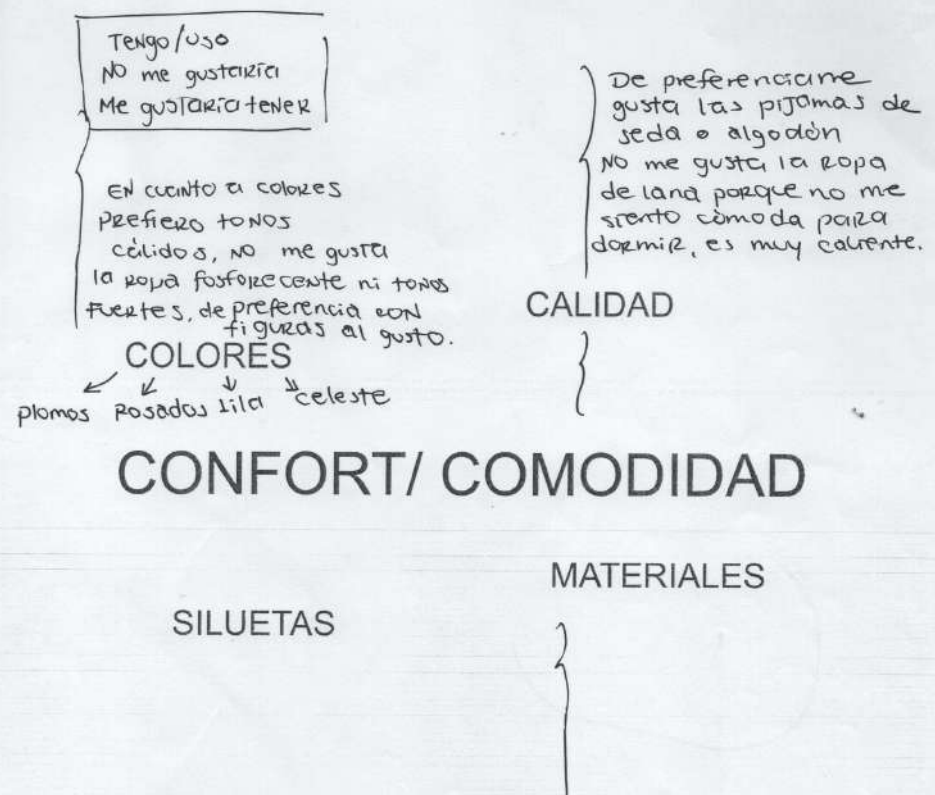 Tengo/uso
No me gustaría
Me gustaría tener
En cuanto a colores
prefiero tonos
cálidos, no me gusta
la ropa fosforecente ni tonos
fuertes, de preferencia con
figuras al gusto.
COLORES
plomos rosados lila celeste
De preferencia me
gusta las pijamas de
seda o algodón
No me gusta la ropa
de lana porque no me
siento cómoda para
dormir, es muy caliente.
CALIDAD
CONFORT/ COMODIDAD
MATERIALES
SILUETAS